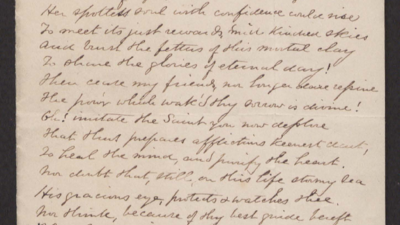 Her spotless soul with confidence could rise
To meet its just reward, 'mid kindred skies
And burst the fetters of this mortal clay
To share the glories of eternal day!
Then cease my friend, nor longer dare repine
The pow'r which wak'd thy sorrow is divine!
Oh! imitate the Saint you now deplore
That thus prepares affliction's keenest
To heal the mind, and purify the heart.
Nor doubt that, still, on this life stormy sea
His gracious eye, protects & watches thee.
Nor think, because of thy best guide bereft